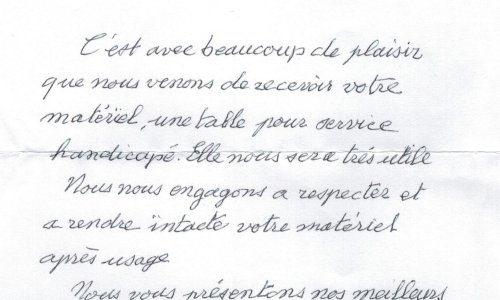 C'est avec beaucoup de plaisir
que nous venons de recevoir votre
matériel, une table pour service
handicapé. Elle nous sera trés utile
Nous nous engagons a respecter et
a rendre intacte votre matériel
après usage
Nous vous présentons nos meilleurs